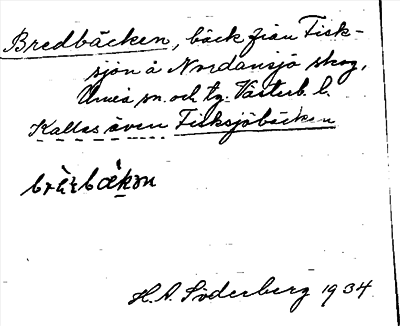 Bredbäcken, bäck från Fisk-
sjön å Nordansjö skog,
Umeå sn. och tg. Västerb. l.
Kallas även Fisksjöbäcken
H. A. Söderberg 1934